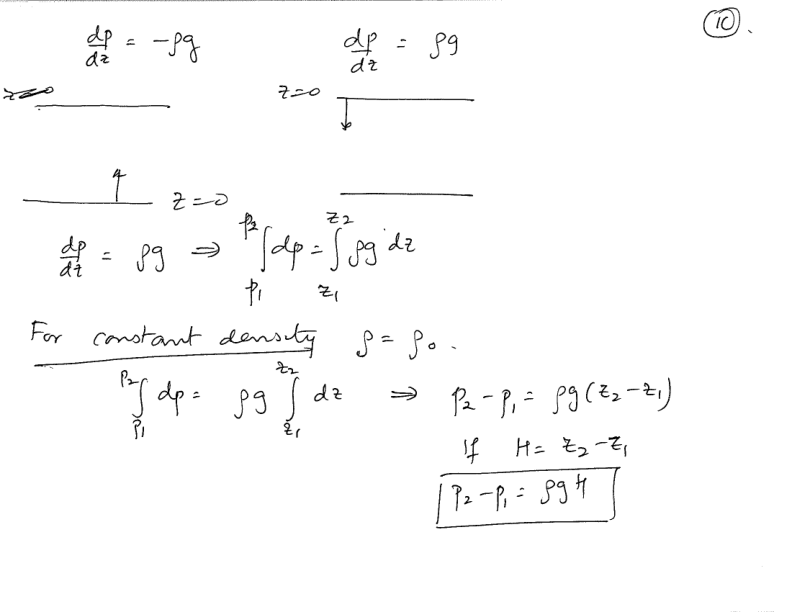 10
dp/dz = -ρg    dp/dz = ρg
z=0
z=0
dp/dz = ρg ⇒ ∫_{p₁}^{p₂} dp = ∫_{z₁}^{z₂} ρg dz
For constant density ρ = ρ₀.
∫_{p₁}^{p₂} dp = ρg ∫_{z₁}^{z₂} dz ⇒ p₂ - p₁ = ρg(z₂ - z₁)
If H = z₂ - z₁
p₂ - p₁ = ρgH